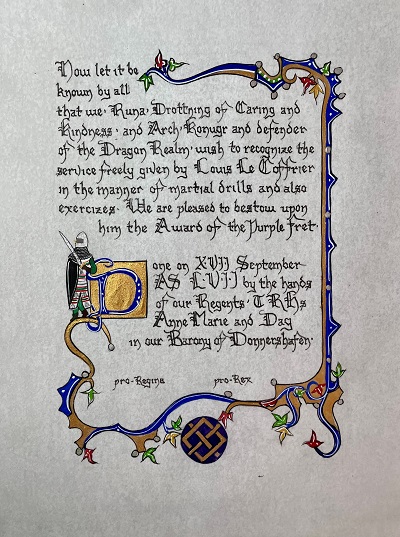 Now let it be
known by all
that we, Runa, Drottning of Caring and
Kindness, and Arch, Konugr and defender
of the Dragon Realm, wish to recognize the
service freely given by Louis Le Coffrier
in the manner of martial drills and also
exercizes. We are pleased to bestow upon
him the Award of the Purple Fret.
Done on XVII September
AS LVII by the hands
of our Regents, TRHs
AnneMarie and Dag
in our Barony of Donnershafen.
pro-Regina pro-Rex